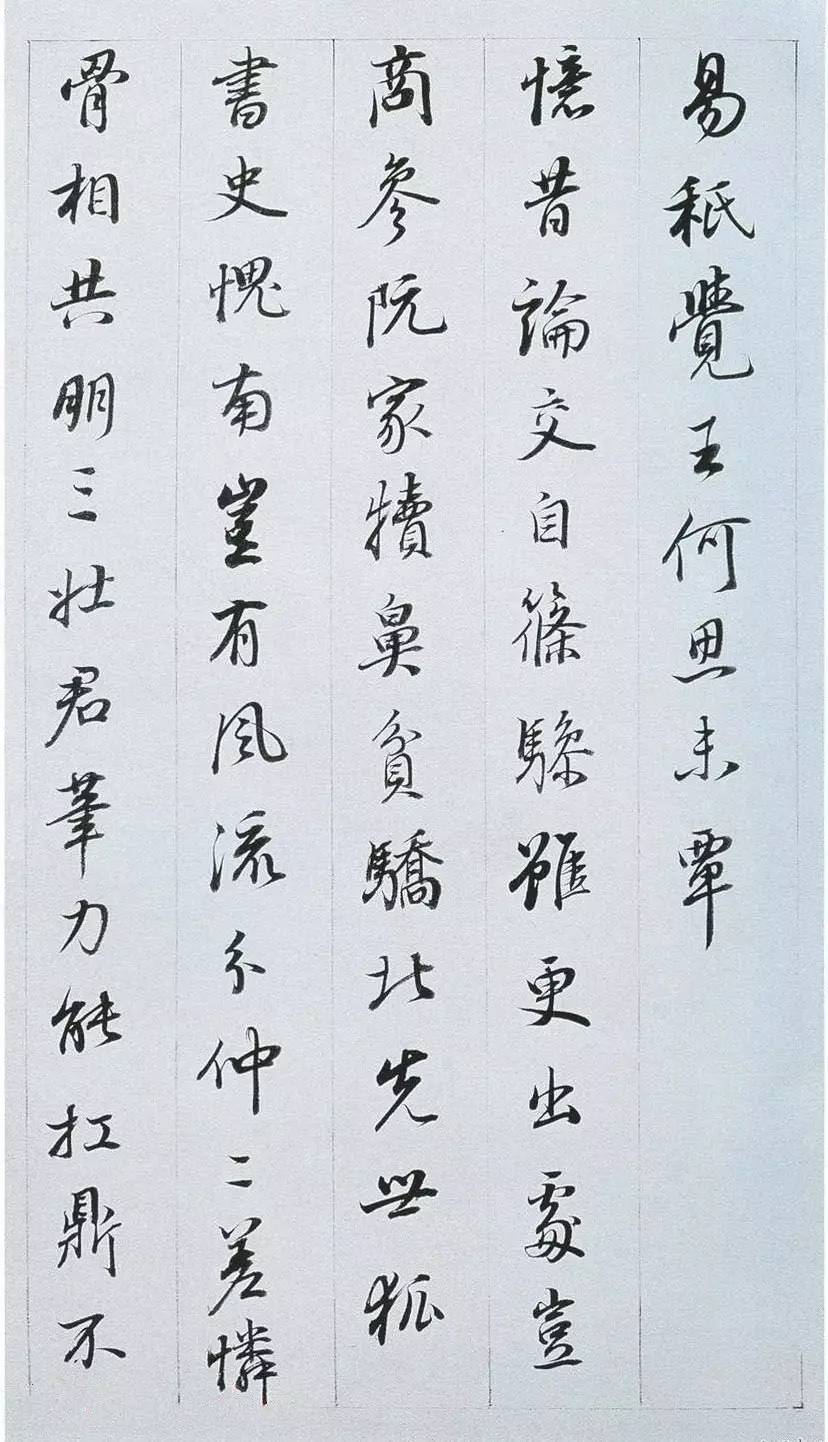 易秖覺王何思未覃
憶昔論交自篠驂雖更出處豈
商參阮家犢鼻貧驕北先世狐
書史愧南董有風流分仲二差憐
骨相共明三壯君筆力能扛鼎不